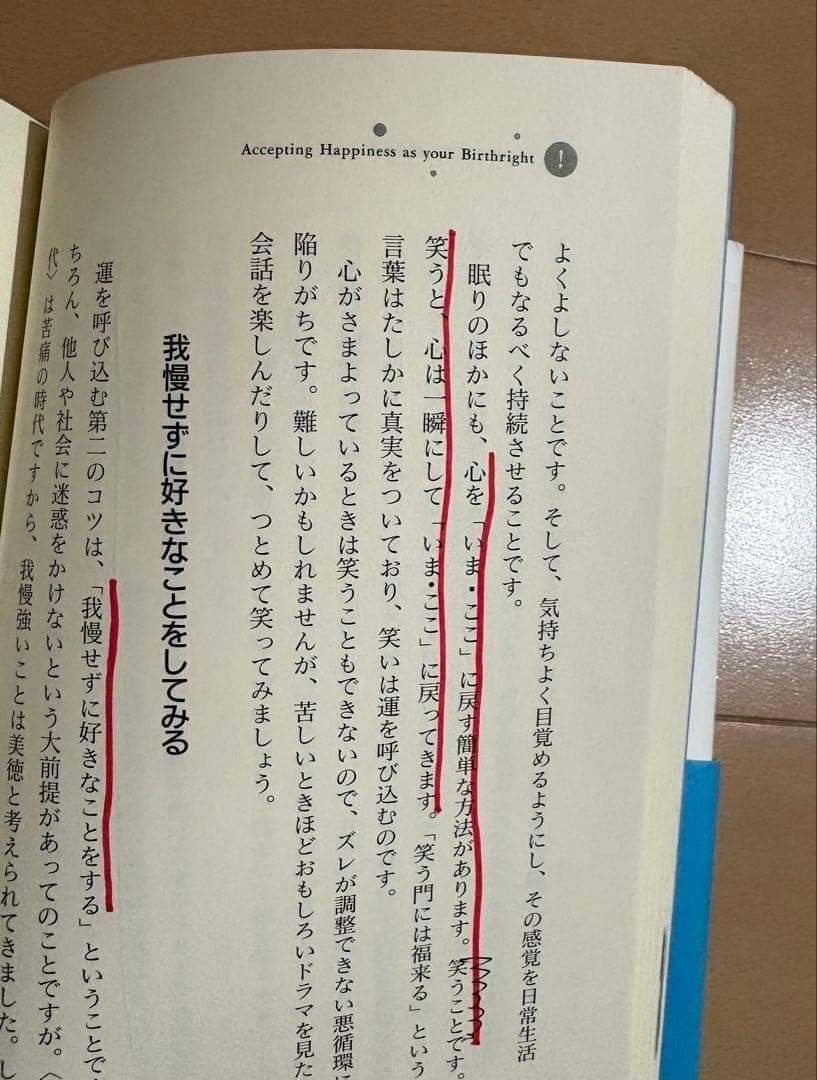 Accepting Happiness as your Birthright
!
よくよしないことです。そして、気持ちよく目覚めるようにし、その感覚を日常生活
でもなるべく持続させることです。
眠りのほかにも、心を「いま・ここ」に戻す簡単な方法があります。笑うことです。
笑うと、心は一瞬にして「いま・ここ」に戻ってきます。「笑う門には福来る」という
言葉はたしかに真実をついており、笑いは運を呼び込むのです。
心がさまよっているときは笑うこともできないので、ズレが調整できない悪循環に
陥りがちです。難しいかもしれませんが、苦しいときほどおもしろいドラマを見た
会話を楽しんだりして、つとめて笑ってみましょう。
我慢せずに好きなことをしてみる
運を呼び込む第二のコツは、「我慢せずに好きなことをする」ということで
ちろん、他人や社会に迷惑をかけないという大前提があってのことですが。〈
代〉は苦痛の時代ですから、我慢強いことは美徳と考えられてきました。し